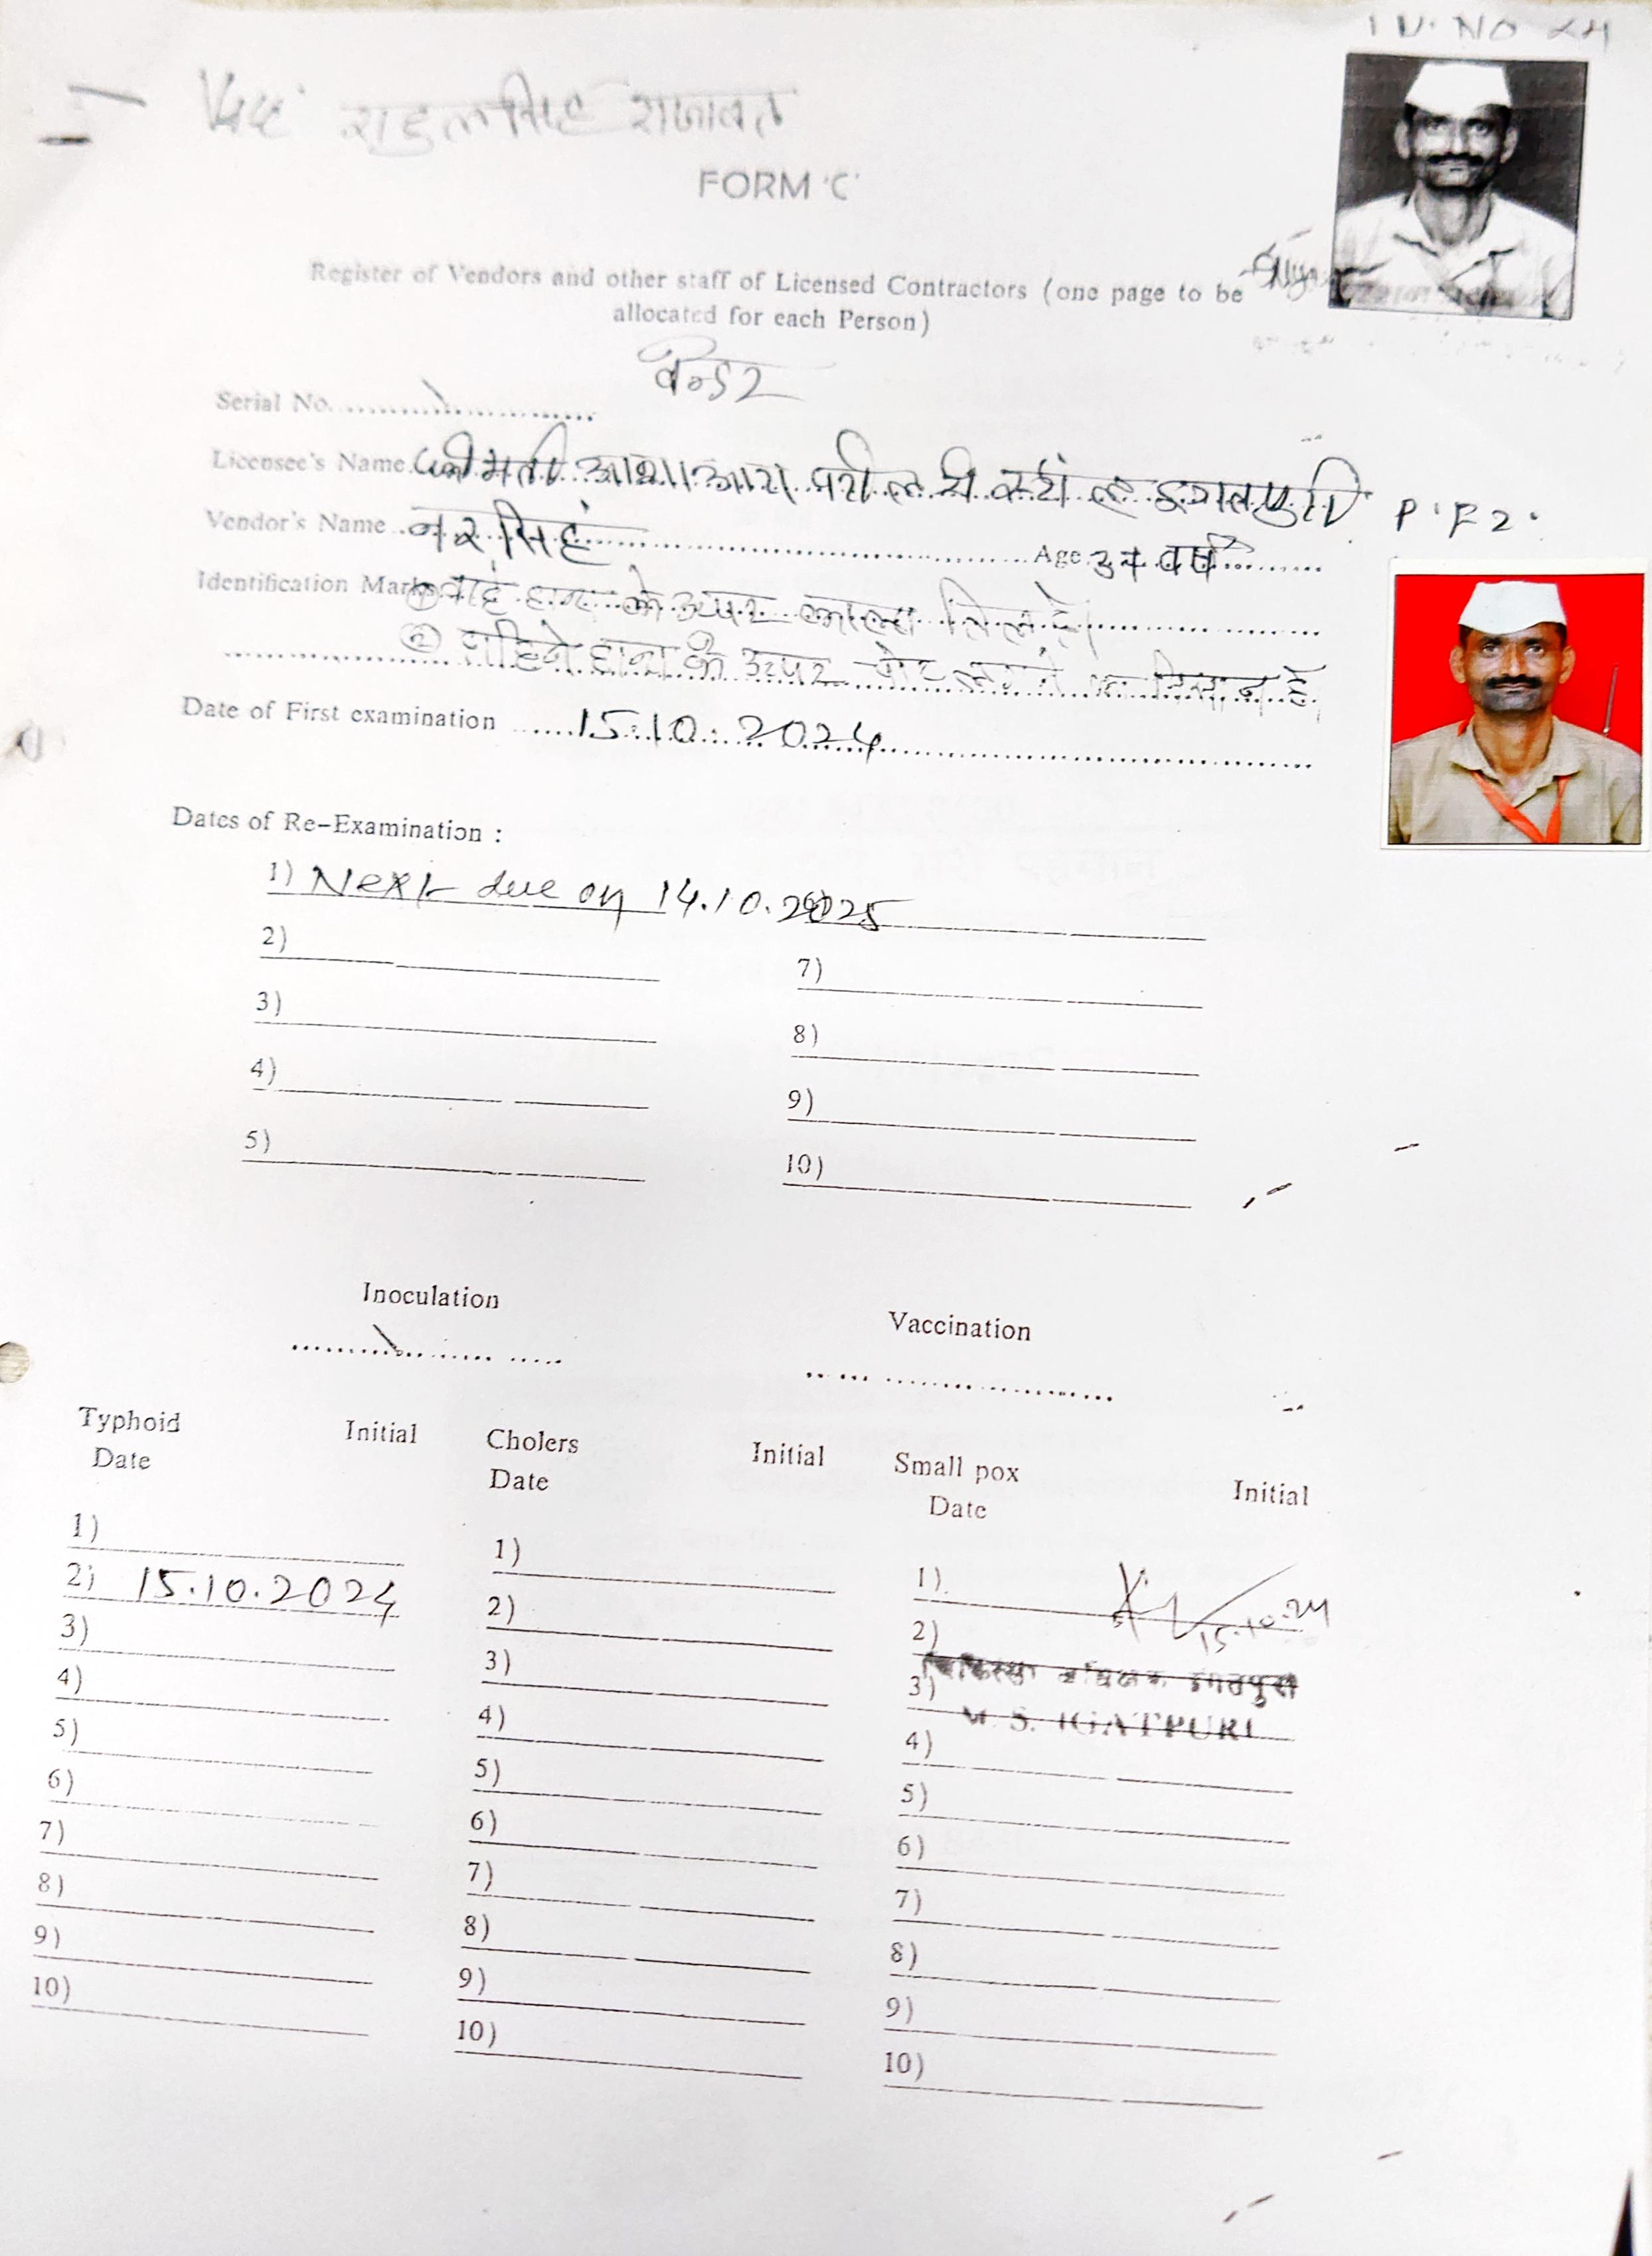 I D. NO 24
राहुलसिंह राजावत
FORM 'C'
Register of Vendors and other staff of Licensed Contractors (one page to be
allocated for each Person)
वेन्डर
Serial No.
Licensee's Name श्रीमती आशा आरा पटील टी स्टॉल इगतपुरी P.F 2.
Vendor's Name नर सिंह Age 34 वर्ष
Identification Marks ① हाथ के उपर काला तिल है।
② दाहिने हाथ के उपर चोट लगने का निशान है,
Date of First examination 15.10.2024
Dates of Re-Examination :
1) Next due on 14.10.2025
2)
7)
3)
8)
4)
9)
5)
10)
Inoculation
Vaccination
Typhoid Initial Cholers Initial Small pox Initial
Date Date Date
1) 1) 1)
2) 15.10.2024 2) 2) 15.10.24
चिकित्सा अधीक्षक इगतपुरी
3) 3) 3)
M. S. IGATPURI
4) 4) 4)
5) 5) 5)
6) 6) 6)
7) 7) 7)
8) 8) 8)
9) 9) 9)
10) 10) 10)